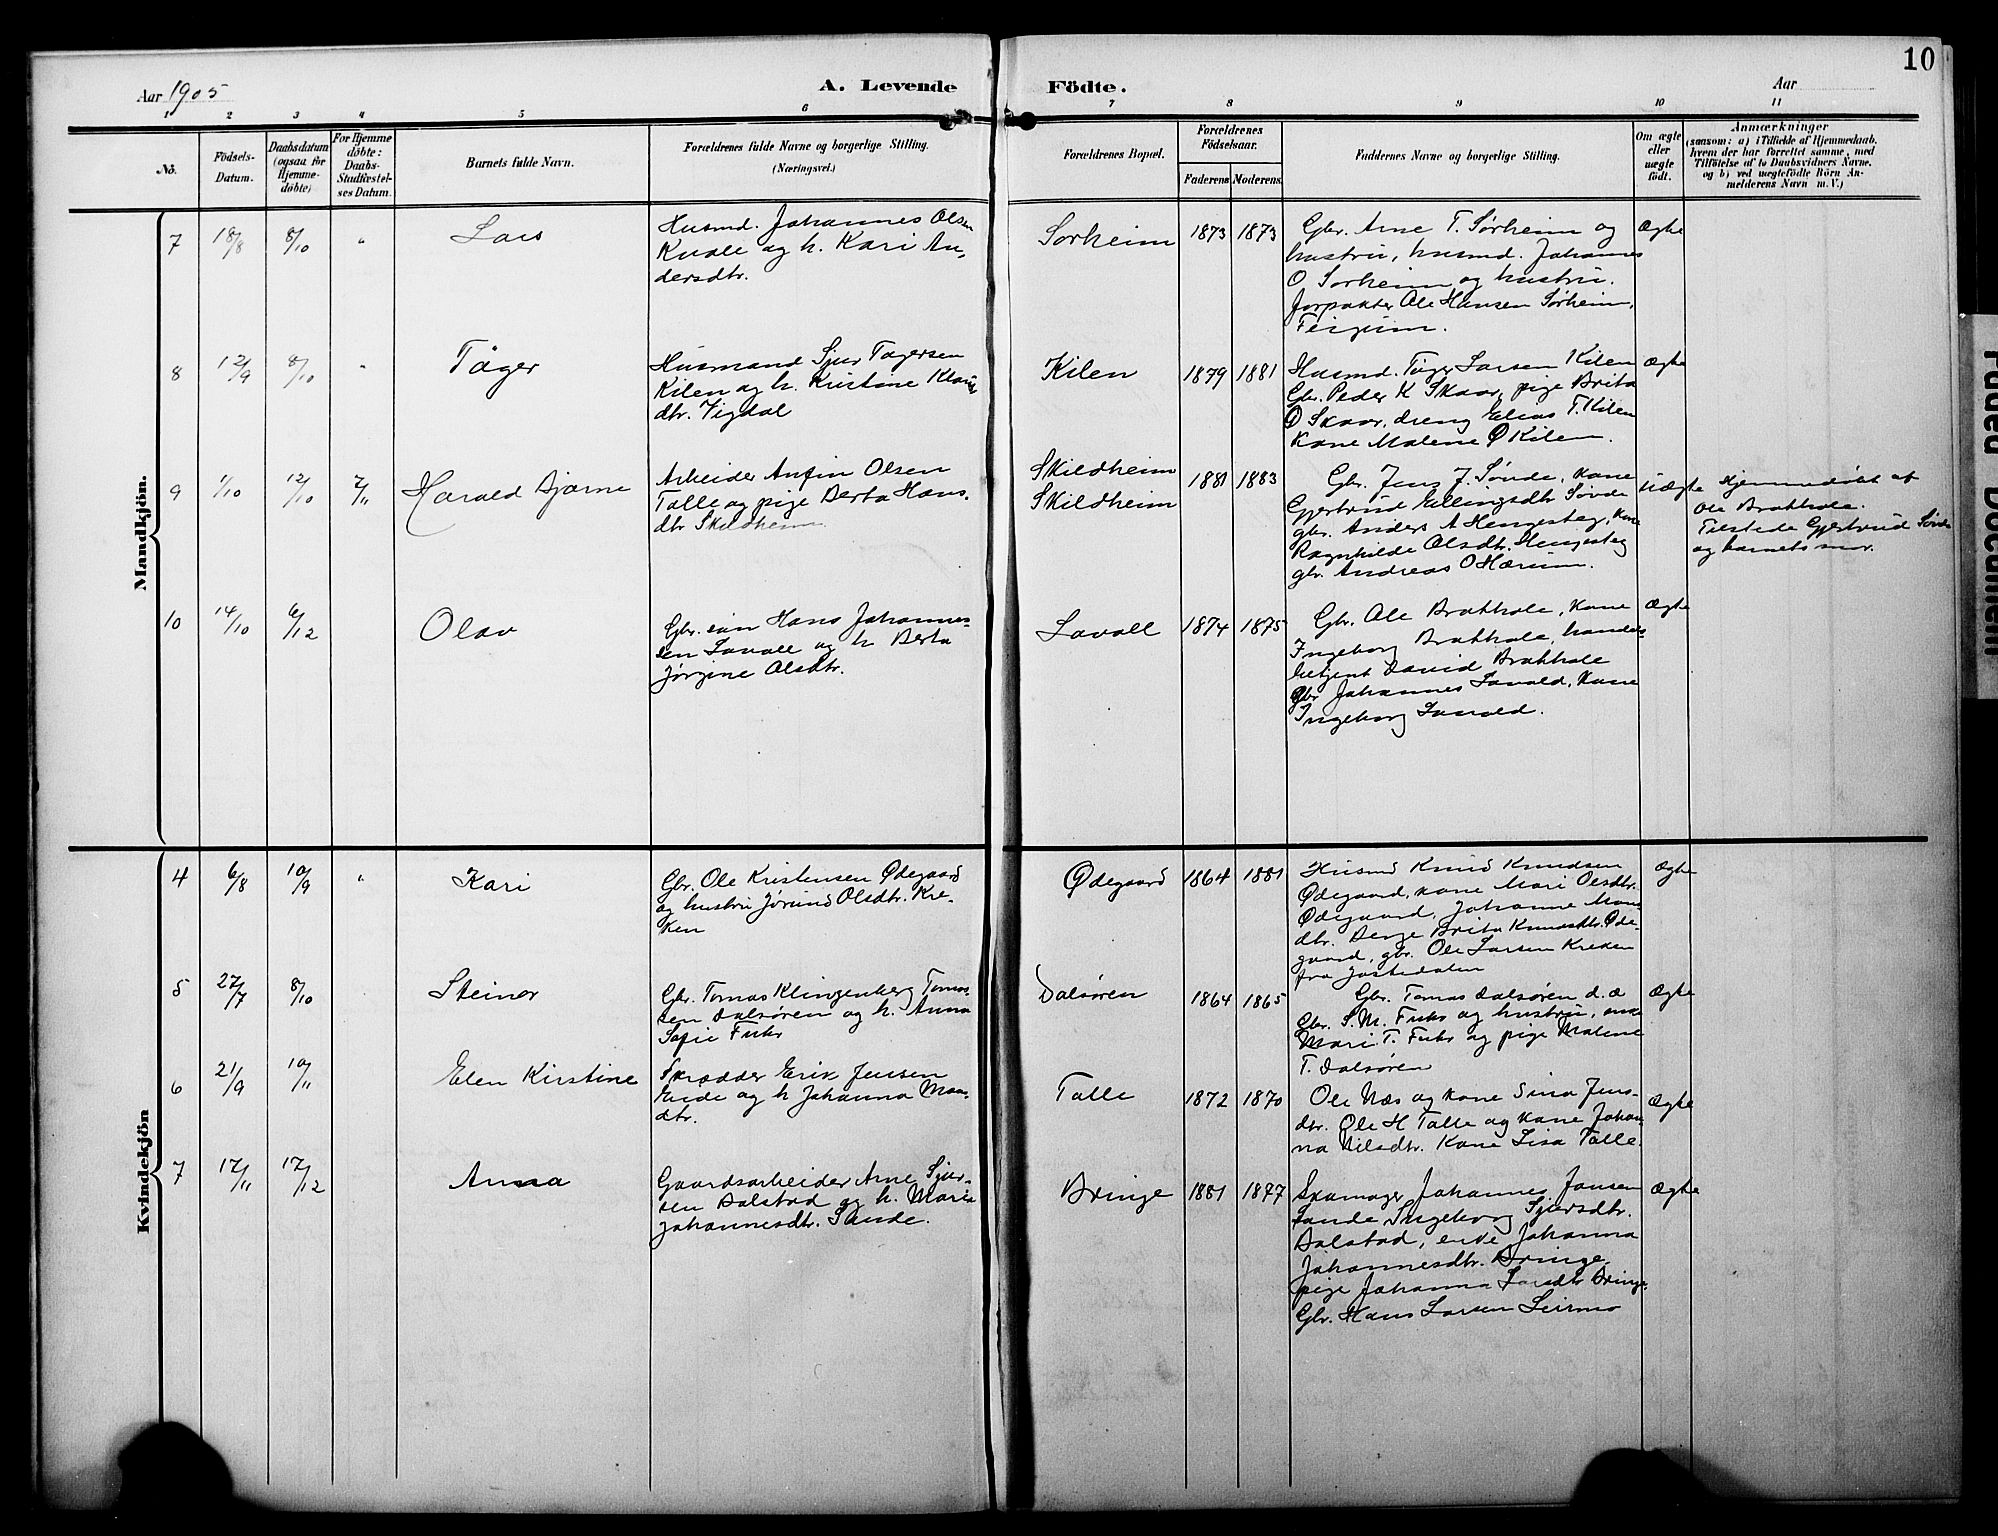 10
Aar 1905
A. Levende Födte.
Aar
1 2 3 4 5 6 7 8 9 10 11
No.
Födsels-Datum.
Daabsdatum (ogsaa för Hjemme-döbte)
For Hjemme döbte: Daabs-Stadfæstel-ses Datum.
Barnets fulde Navn.
Forældrenes fulde Navne og borgerlige Stilling.
(Næringsvei.)
Forældrenes Bopæl.
Forældrenes Födselsaar.
Faderens
Moderens
Faddernes Navne og borgerlige Stilling.
Om ægte eller uægte födt.
Anmærkninger
(saasom: a) i Tilfælde af Hjemmedaab,
hvem der har forrettet samme, med
Tilföielse af to Daabsvidners Navne,
og b) ved uægtefödte Börn An-
melderens Navn m. V.)
Mandkjön.
7 18/8 8/10 " Lars
Husmd. Johannes Olsen
Kvale og h. Kari An-
dersdtr.
Sørheim 1873 1873
Gbr. Arne T. Sørheim og
hustru, husmd. Johannes
O Sørheim og hustru.
forpakter Ole Hansen Sørheim,
Feigum.
Ægte
8 12/9 8/10 " Tøger
Husmand Sjur Tøgersen
Kilen og h. Kristine
dtr. Vigdal
Kilen 1879 1881
Husmd. Tøger Larsen Kilen
Gbr. Peder K Skaar, pige Brita
O Skaar, dreng Elias T. Kilen
Kone Malene Ø Kilen.
Ægte
9 1/10 12/10 7/11 Harald Bjarne
Arbeider Anfin Olsen
Talle og pige Berta Hans-
dtr Skildheim
Skildheim
Skildheim
1881 1883
Gbr. Jens J. Sønde, kone
Gjertrud Ellingsdtr Sønde
gbr. Anders A Hengesteg, kone
Ragnhilde Olsdtr. Hengesteg
gbr. Andreas O Hærum.
Uægte
Hjemmedøbt af
Ole Brakhole.
Tilstede Gjertrud Sønde
og barnets mor.
10 14/10 6/12 Olav
Gbr. søn Hans Johannes-
sen Lavoll og h Berta
Jørgine Olsdtr.
Lavoll 1874 1875
Gbr. Ole Brakhole, kone
Ingeborg Brakhole, handels-
betjent David Brakhole
Gbr Johannes Lavold, Kone
Ingeborg Lavold.
Ægte
Kvindekjön
4 6/8 10/9 " Kari
Gbr. Ole Kristensen Ødegaard
og hustru Jørund Olsdtr. Kre-
ken
Ødegaard 1864 1881
Husmd Knud Knudsen
Ødegaard, kone Mari Olsdtr.
Ødegaard, Johanne Mons-
dtr. Brita Knudsdtr. Øde-
gaard, gbr. Ole Larsen Kreken
fra Jostedalen
Ægte
5 27/7 8/10 Steinar
Gbr. Tomas Klingenberg Tomas-
sen Dalsøren og h. Anna
Sofie Fuhr
Dalsøren 1864 1865
Gbr. Tomas Dalsøren d. æ
Gbr. S. M. Fuhr og hustru,
Mari T. Fuhr og pige Malene
T. Dalsøren
Ægte
6 21/9 10/11 Elen Kirstine
Skrædder Erik Jensen
Eide og h Johanna Mons-
dtr.
Talle 1872 1870
Ole Næs og kone Sina Jens-
dtr. Ole H Talle og kone Johan-
na Nilsdtr. Kone Lisa Talle.
Ægte
7 17/11 17/12 Anna
Gaardsarbeider Arne Sjur-
sen Dalstad og h. Maria
Johannesdtr. Sande.
Bringe 1881 1877
Skomager Johannes Jonsen
Sande Ingeborg Sjursdtr.
Dalstad, enke Johanna
Johannesdtr. Bringe
pige Johanna Larsdtr Bringe.
Gbr. Hans Larsen Leirmo
Ægte
Faded Document